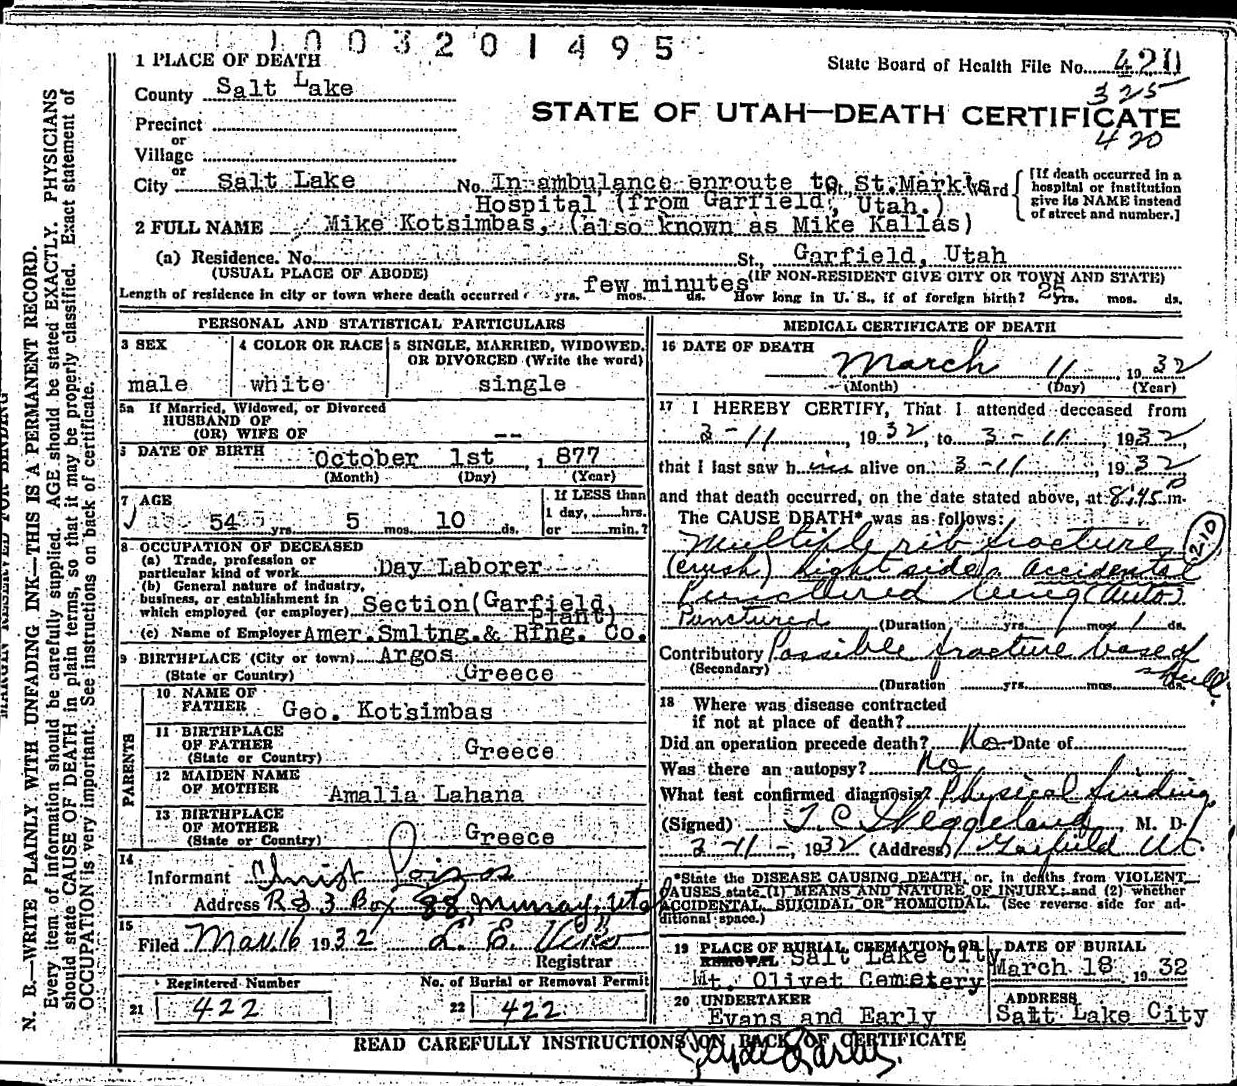 1003201495
1 PLACE OF DEATH
State Board of Health File No. 420
County Salt Lake
325
STATE OF UTAH—DEATH CERTIFICATE
420
Precinct
or
Village
or
City Salt Lake No. In ambulance enroute to St. Mark's Ward
Hospital (from Garfield, Utah.)
[If death occurred in a
hospital or institution
give its NAME instead
of street and number.]
2 FULL NAME Mike Kotsimbas, (also known as Mike Kallas)
(a) Residence. No. St., Garfield, Utah
(USUAL PLACE OF ABODE) (IF NON-RESIDENT GIVE CITY OR TOWN AND STATE)
Length of residence in city or town where death occurred yrs. few minutes mos. ds. How long in U. S., if of foreign birth? 25 yrs. mos. ds.
PERSONAL AND STATISTICAL PARTICULARS
3 SEX
male
4 COLOR OR RACE
white
5 SINGLE, MARRIED, WIDOWED,
OR DIVORCED (Write the word)
single
5a If Married, Widowed, or Divorced
HUSBAND OF
(OR) WIFE OF --
DATE OF BIRTH October 1st, 1877
(Month) (Day) (Year)
7 AGE
54 yrs. 5 mos. 10 ds.
If LESS than
1 day, ......hrs.
or ......min.?
8 OCCUPATION OF DECEASED
(a) Trade, profession or
particular kind of work Day Laborer
(b) General nature of industry,
business, or establishment in
which employed (or employer) Section (Garfield
Plant)
(c) Name of Employer Amer. Smltng. & Rfng. Co.
9 BIRTHPLACE (City or town) Argos
(State or Country) Greece
PARENTS
10 NAME OF
FATHER Geo. Kotsimbas
11 BIRTHPLACE
OF FATHER
(State or Country) Greece
12 MAIDEN NAME
OF MOTHER Amalia Lahana
13 BIRTHPLACE
OF MOTHER
(State or Country) Greece
14
Informant Christ
Address R & 3 Box 88 Murray, Utah
15
Filed Mar. 16 1932 L. E.
Registrar
Registered Number
21 422
No. of Burial or Removal Permit
22 422
MEDICAL CERTIFICATE OF DEATH
16 DATE OF DEATH
March 11 1932
(Month) (Day) (Year)
17 I HEREBY CERTIFY, That I attended deceased from
3-11, 1932, to 3-11, 1932,
that I last saw him alive on 3-11, 1932
and that death occurred, on the date stated above, at 8:45 P m.
The CAUSE DEATH* was as follows:
Multiple rib fracture 210
(crush) Right side. accidental
Punctured lung (auto)
Punctured (Duration yrs. mos. 1 ds.
Contributory Possible fracture base of
(Secondary) skull.
(Duration yrs. mos. ds.
18 Where was disease contracted
if not at place of death?
Did an operation precede death? No Date of
Was there an autopsy? No
What test confirmed diagnosis? Physical finding
(Signed) T. C. Heggeland M. D.
3-11-, 1932 (Address) Garfield Ut.
*State the DISEASE CAUSING DEATH, or, in deaths from VIOLENT
CAUSES, state (1) MEANS AND NATURE OF INJURY; and (2) whether
ACCIDENTAL, SUICIDAL OR HOMICIDAL. (See reverse side for ad-
ditional space.)
19 PLACE OF BURIAL, CREMATION, OR
REMOVAL Salt Lake City
Mt. Olivet Cemetery
DATE OF BURIAL
March 18 1932
20 UNDERTAKER
Evans and Early
ADDRESS
Salt Lake City
READ CAREFULLY INSTRUCTIONS ON BACK OF CERTIFICATE
MARGIN RESERVED FOR BINDING
N. B.—WRITE PLAINLY WITH UNFADING INK—THIS IS A PERMANENT RECORD.
Every item of information should be carefully supplied. AGE should be stated EXACTLY. PHYSICIANS
should state CAUSE OF DEATH in plain terms, so that it may be properly classified. Exact statement of
OCCUPATION is very important. See instructions on back of certificate.